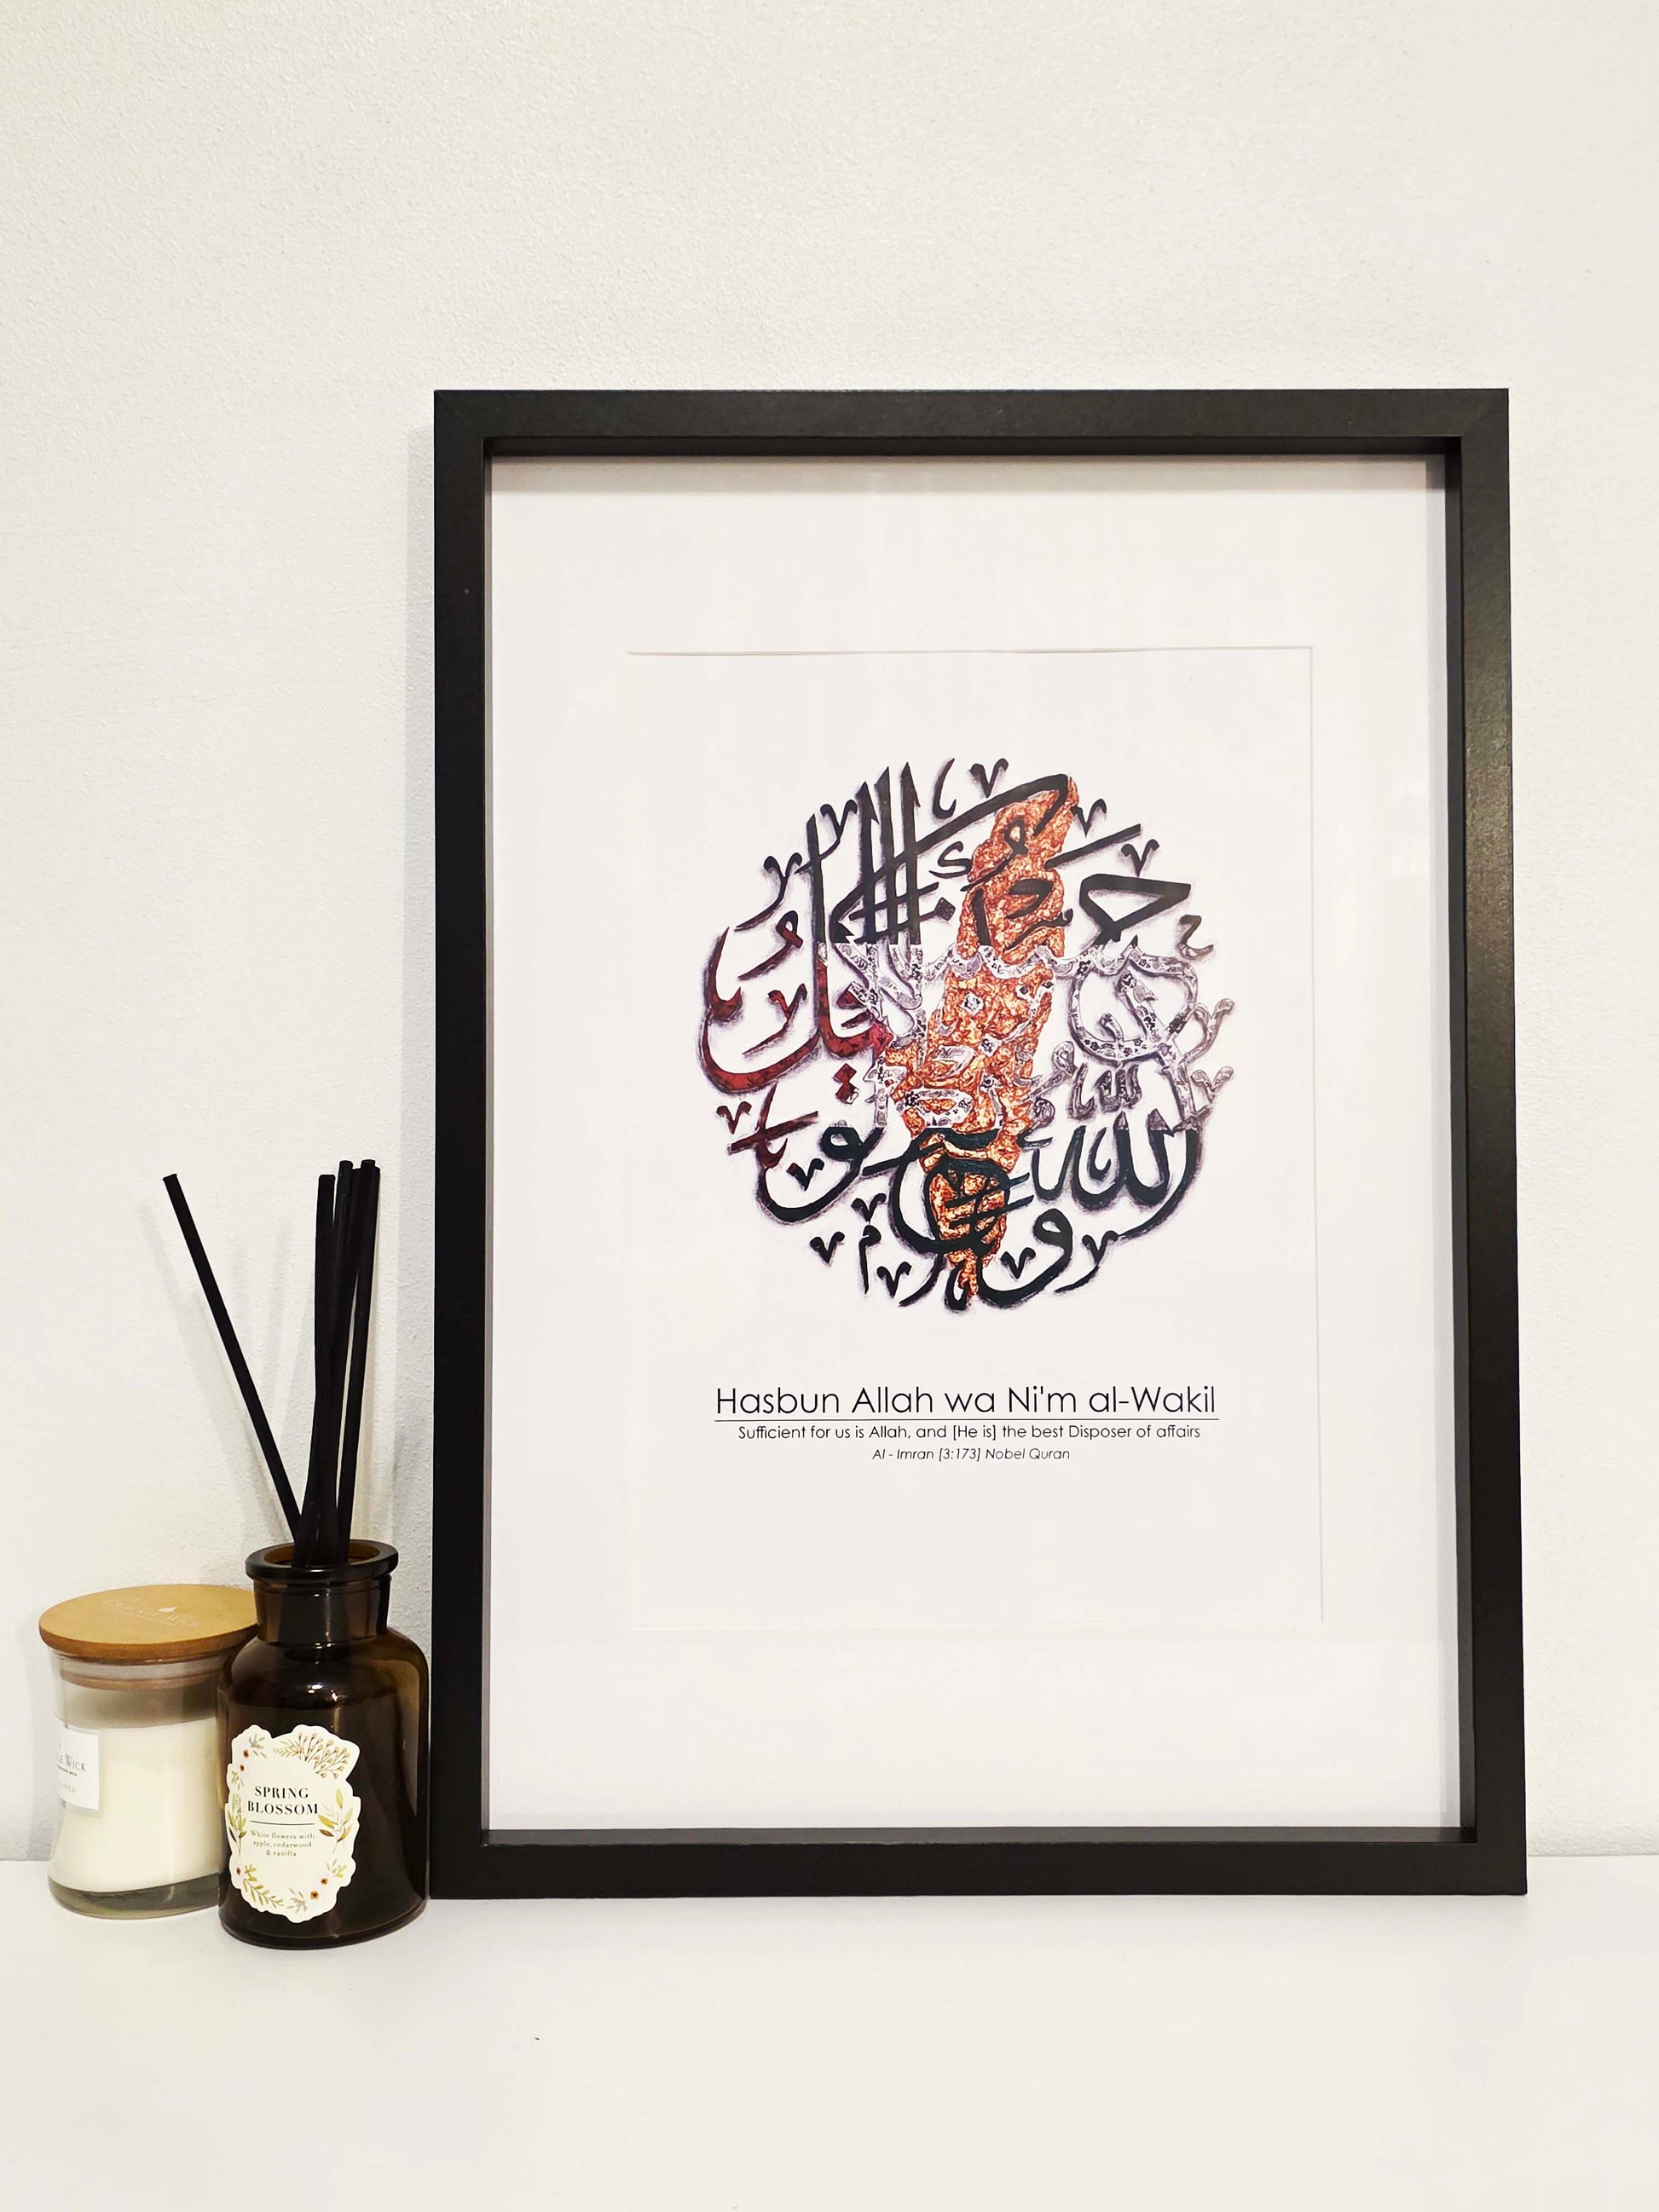 حسبنا الله ونعم الوكيل
Hasbun Allah wa Ni'm al-Wakil
Sufficient for us is Allah, and [He is] the best Disposer of affairs
Al - Imran [3:173] Nobel Quran
WICK
SPRING
BLOSSOM
White flowers with
apple, cedarwood
& vanilla